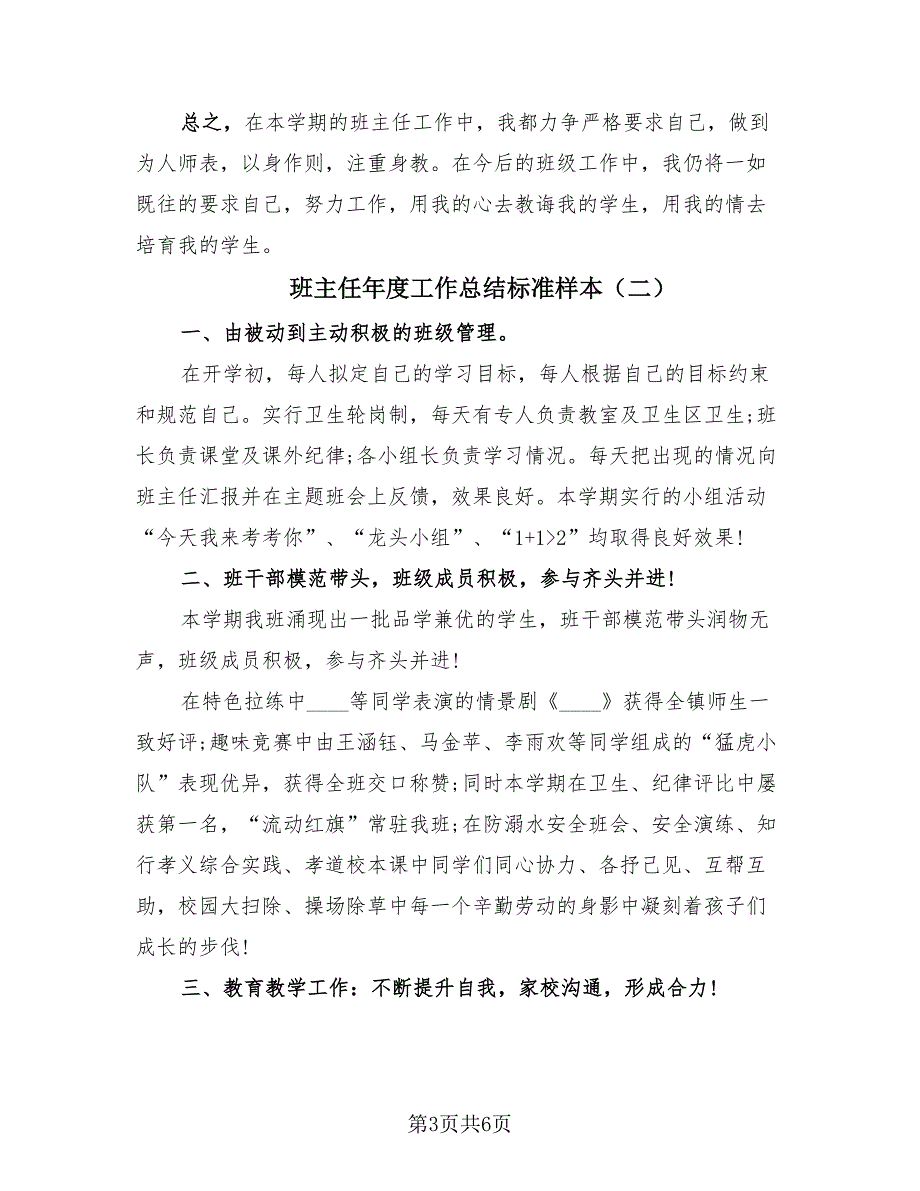 总之，在本学期的班主任工作中，我都力争严格要求自己，做到
为人师表，以身作则，注重身教。在今后的班级工作中，我仍将一如
既往的要求自己，努力工作，用我的心去教诲我的学生，用我的情去
培育我的学生。
班主任年度工作总结标准样本（二）
一、由被动到主动积极的班级管理。
在开学初，每人拟定自己的学习目标，每人根据自己的目标约束
和规范自己。实行卫生轮岗制，每天有专人负责教室及卫生区卫生;班
长负责课堂及课外纪律;各小组长负责学习情况。每天把出现的情况向
班主任汇报并在主题班会上反馈，效果良好。本学期实行的小组活动
“今天我来考考你”、“龙头小组”、“1+1>2”均取得良好效果!
二、班干部模范带头，班级成员积极，参与齐头并进!
本学期我班涌现出一批品学兼优的学生，班干部模范带头润物无
声，班级成员积极，参与齐头并进!
在特色拉练中____等同学表演的情景剧《____》获得全镇师生一
致好评;趣味竞赛中由王涵钰、马金苹、李雨欢等同学组成的“猛虎小
队”表现优异，获得全班交口称赞;同时本学期在卫生、纪律评比中屡
获第一名，“流动红旗”常驻我班;在防溺水安全班会、安全演练、知
行孝义综合实践、孝道校本课中同学们同心协力、各抒己见、互帮互
助，校园大扫除、操场除草中每一个辛勤劳动的身影中凝刻着孩子们
成长的步伐!
三、教育教学工作：不断提升自我，家校沟通，形成合力!
第3页共6页